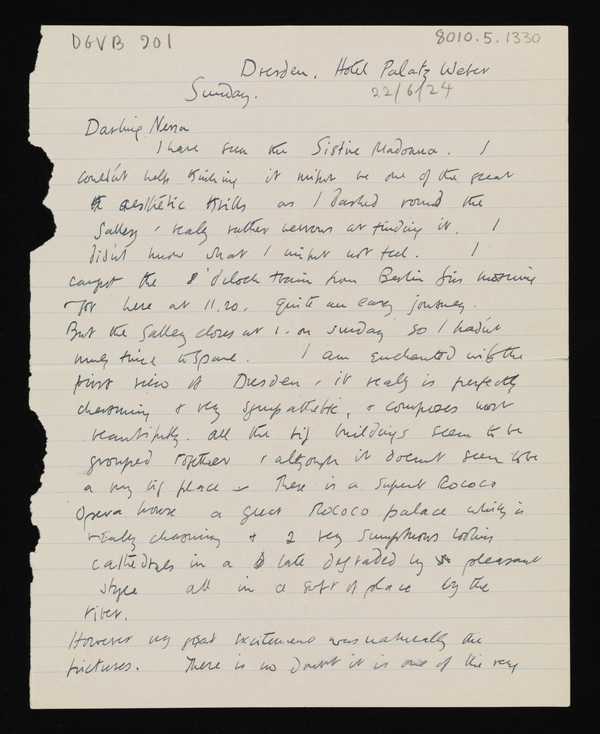 DGVB 201
8010.5.1330
Dresden. Hotel Palatz Weber
Sunday.
22/6/24
Darling Nessa
I have seen the Sistine Madonna. I
couldnt help thinking it might be one of the great
aesthetic thrills as I dashed round the
Gallery & really rather nervous at finding it. I
didnt know what I might not feel. I
caught the 8 o'clock train from Berlin this morning
got here at 11.20. quite an easy journey.
But the Galley closes at 1. on Sunday so I hadnt
much time to spare. I am enchanted with the
first view of Dresden & it really is perfectly
charming & very sympathetic, & composes most
beautifully. All the big buildings seem to be
grouped together & although it doesnt seem to be
a very big place There is a superb Rococo
Opera house a great Rococo palace which is
really charming & 2 very sumptuous looking
cathedrals in a late degraded but pleasant
style all in a sort of place by the
river.
However my great excitement was naturally the
pictures. There is no doubt it is one of the very